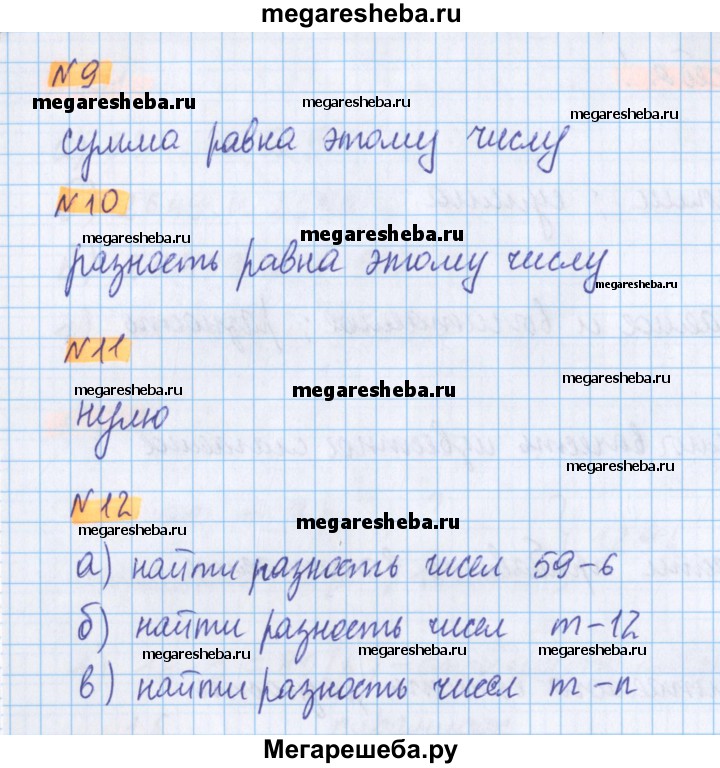 megaresheba.ru
N 9
megaresheba.ru megaresheba.ru megaresheba.ru
сумма равна этому числу
N 10
megaresheba.ru megaresheba.ru
разность равна этому числу
megaresheba.ru
N 11
megaresheba.ru megaresheba.ru megaresheba.ru
нулю
megaresheba.ru
N 12
megaresheba.ru megaresheba.ru
а) найти разность чисел 59-6
б) найти разность чисел m-12
megaresheba.ru megaresheba.ru megaresheba.ru
в) найти разность чисел m-n
Мегарешеба.ру